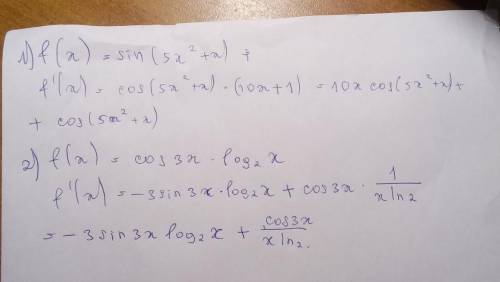 1) f(x) = sin(5x²+x) +
f'(x) = cos(5x²+x)·(10x+1) = 10x cos(5x²+x)+
+ cos(5x²+x)
2) f(x) = cos3x · log₂x
f'(x) = -3sin3x·log₂x + cos3x · 1/(x ln2)
= -3sin3x log₂x + cos3x/(x ln2.)